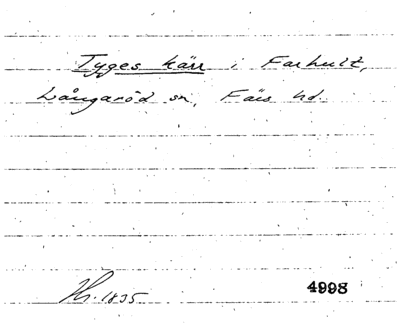 Tyges kärr i Farhult,
Långaröd sn, Färs hd.
Hs. 1835 4998